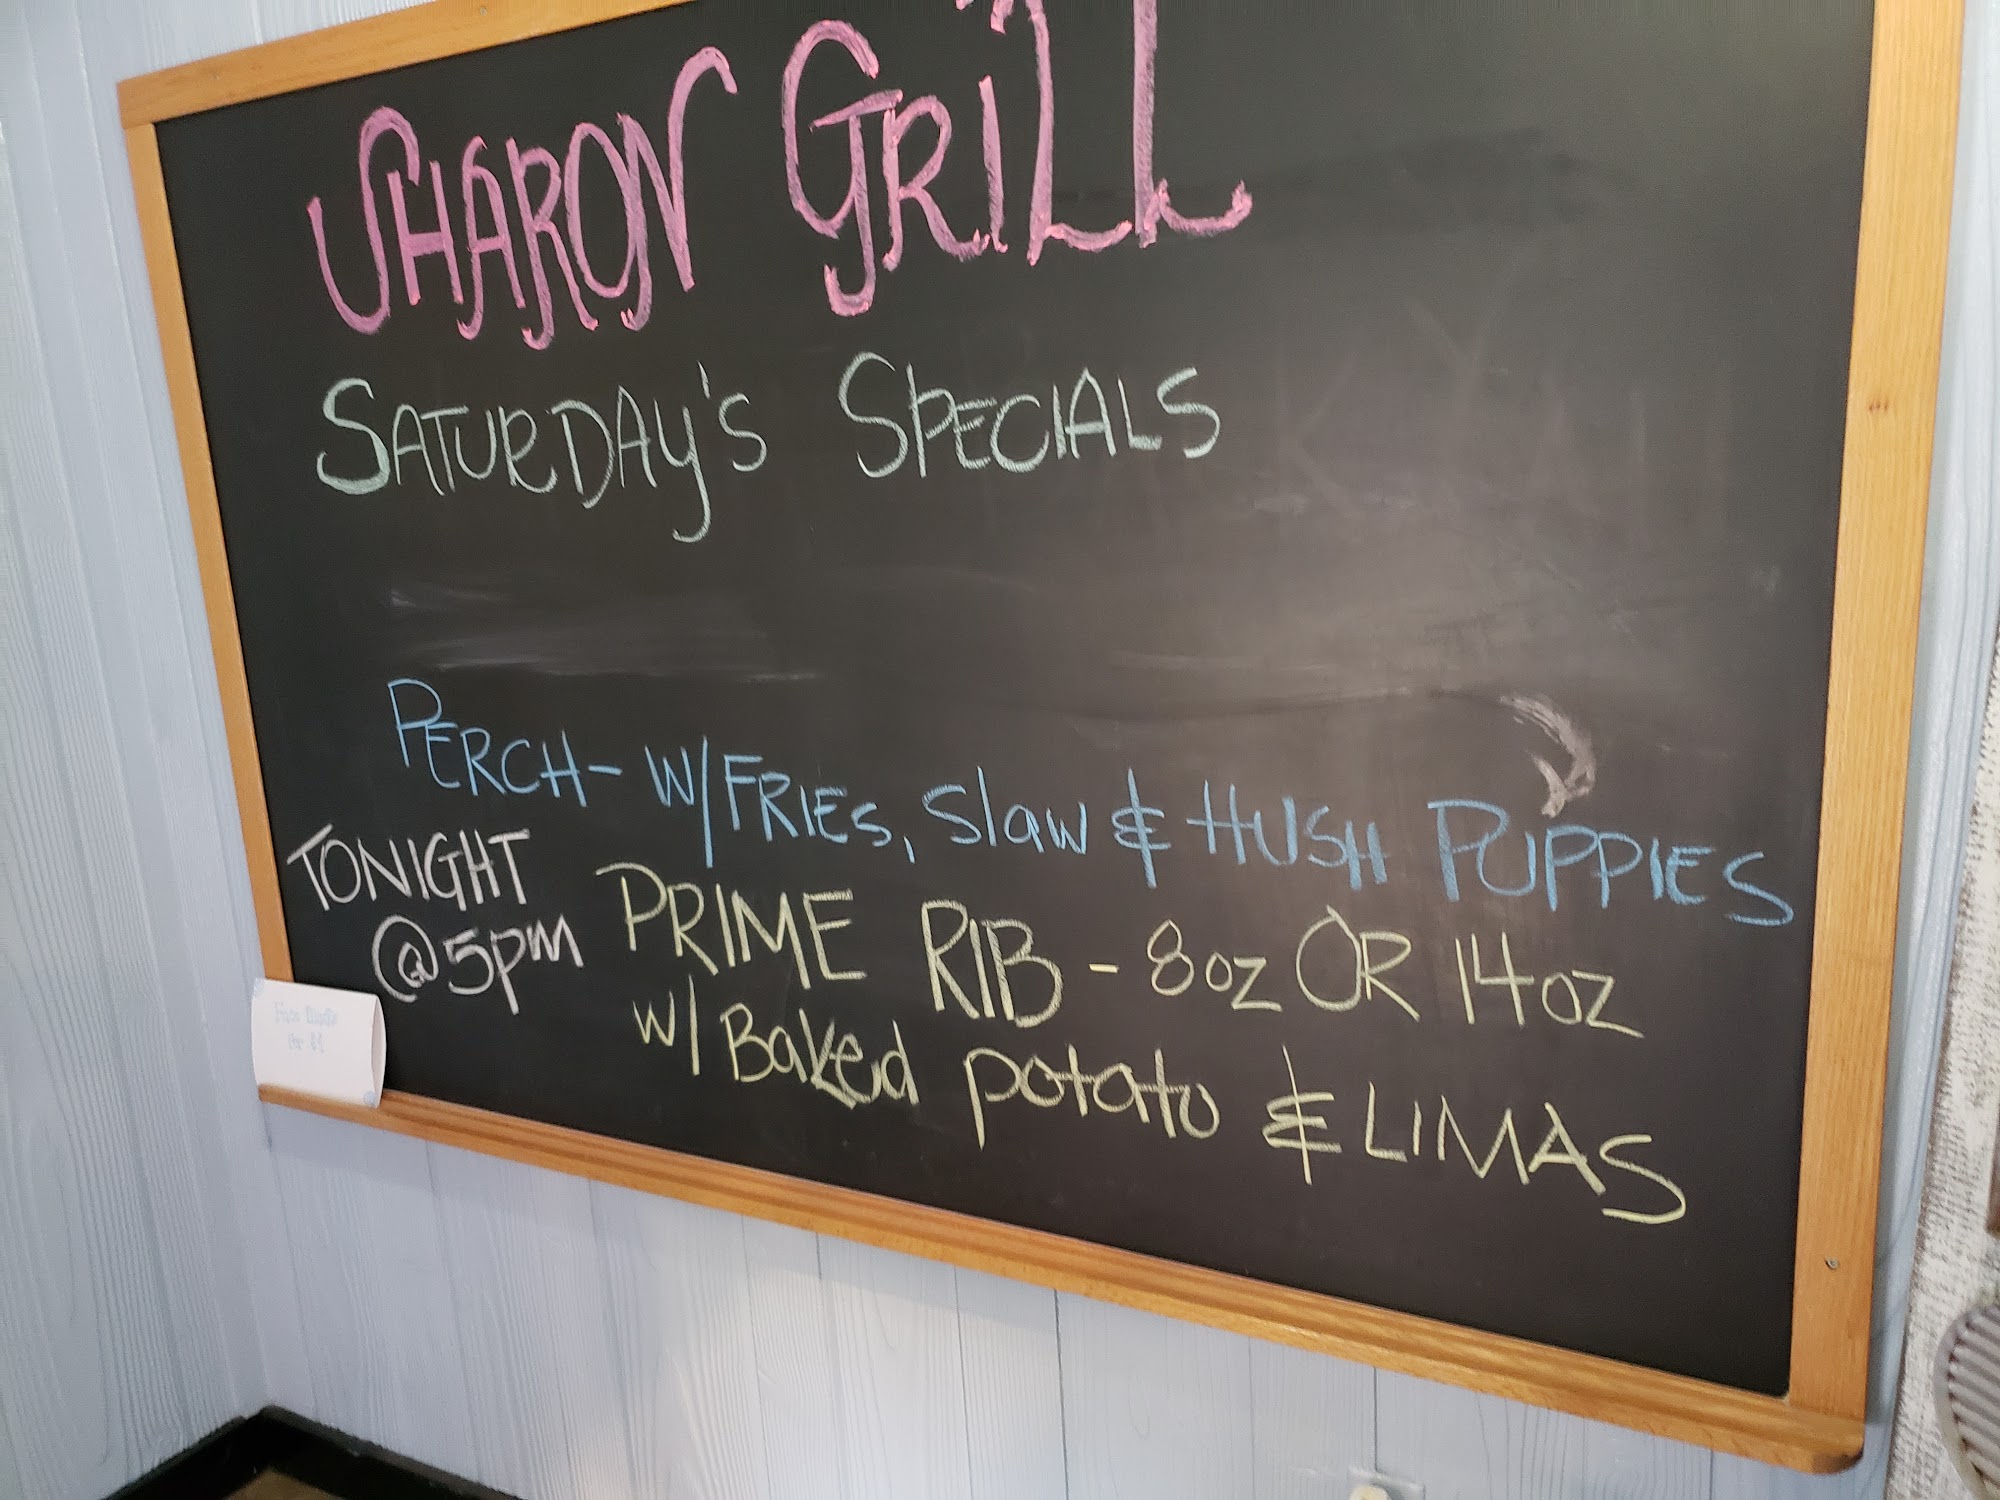 SHARON GRILL
SATURDAY'S SPECIALS
PERCH- W/FRIES, Slaw & HUSH PUPPIES
TONIGHT
@5pm
PRIME RIB - 8oz OR 14oz
W/ BaKed potato & LIMAS